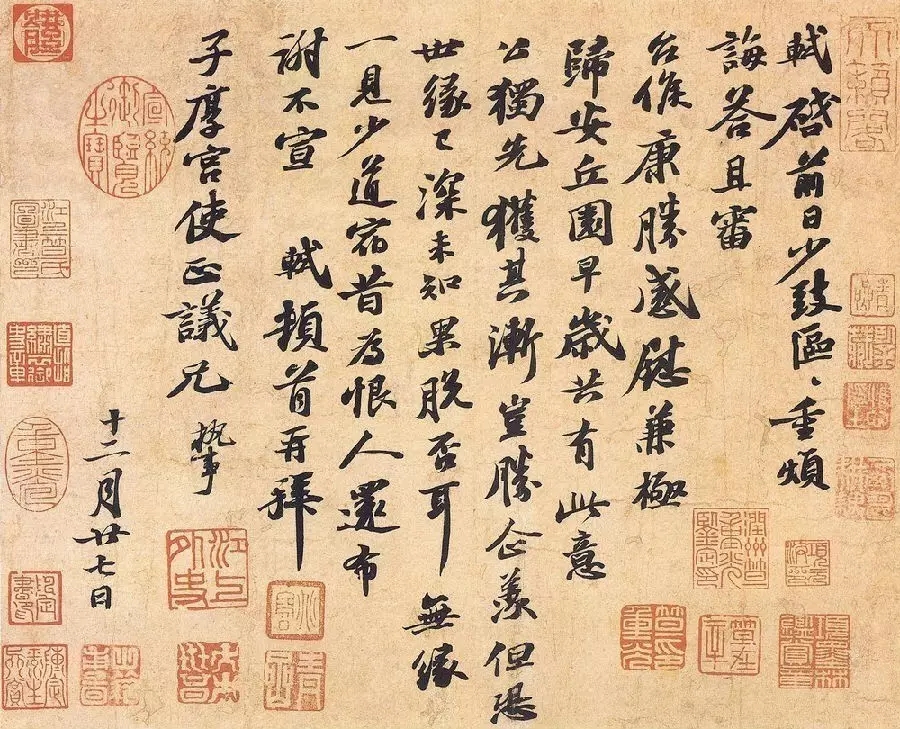 軾啓前日少致區〻重煩
誨答且審
台候康勝感慰兼極
歸安丘園早歲共有此意
公獨先獲其漸豈勝企羨但恐
世緣已深未知果脫否耳無緣
一見少道宿昔為恨人還布
謝不宣 軾頓首再拜
子厚宮使正議兄執事
十二月廿七日
宣統御覽之寶
江上外史